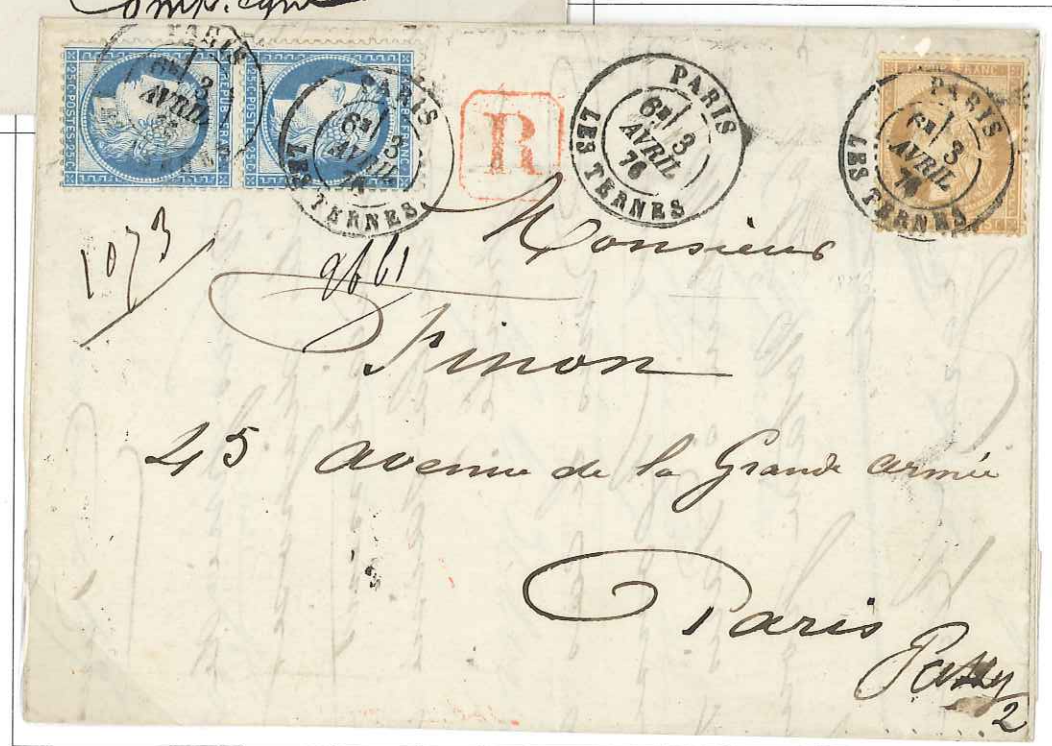 Comp. Cyn
25C POSTES 25C
REPUB FRANC
PARIS
6E/ 3
AVRIL
76
LES TERNES
PARIS
6E/ 3
AVRIL
76
LES TERNES
R
PARIS
6E/ 3
AVRIL
76
LES TERNES
PARIS
6E/ 3
AVRIL
76
LES TERNES
1073
9661
Monsieur
Pinon
45 avenue de la Grande armée
Paris
Passy
2